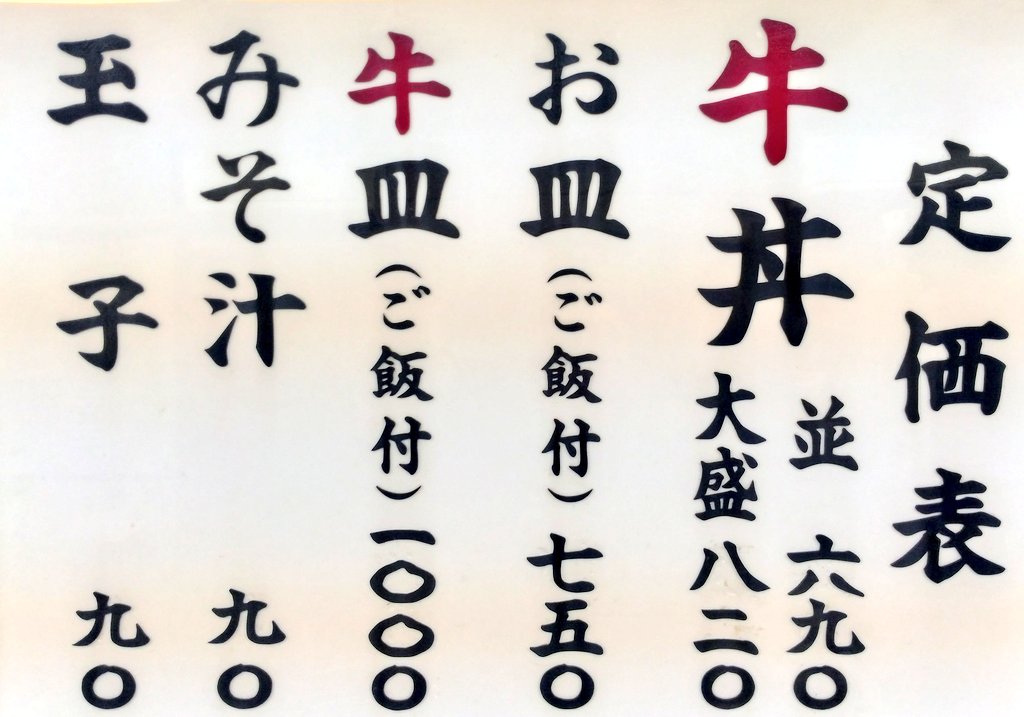 定価表
牛丼 並 六九〇
大盛 八二〇
お皿(ご飯付)七五〇
牛皿(ご飯付)一〇〇〇
みそ汁 九〇
玉子 九〇